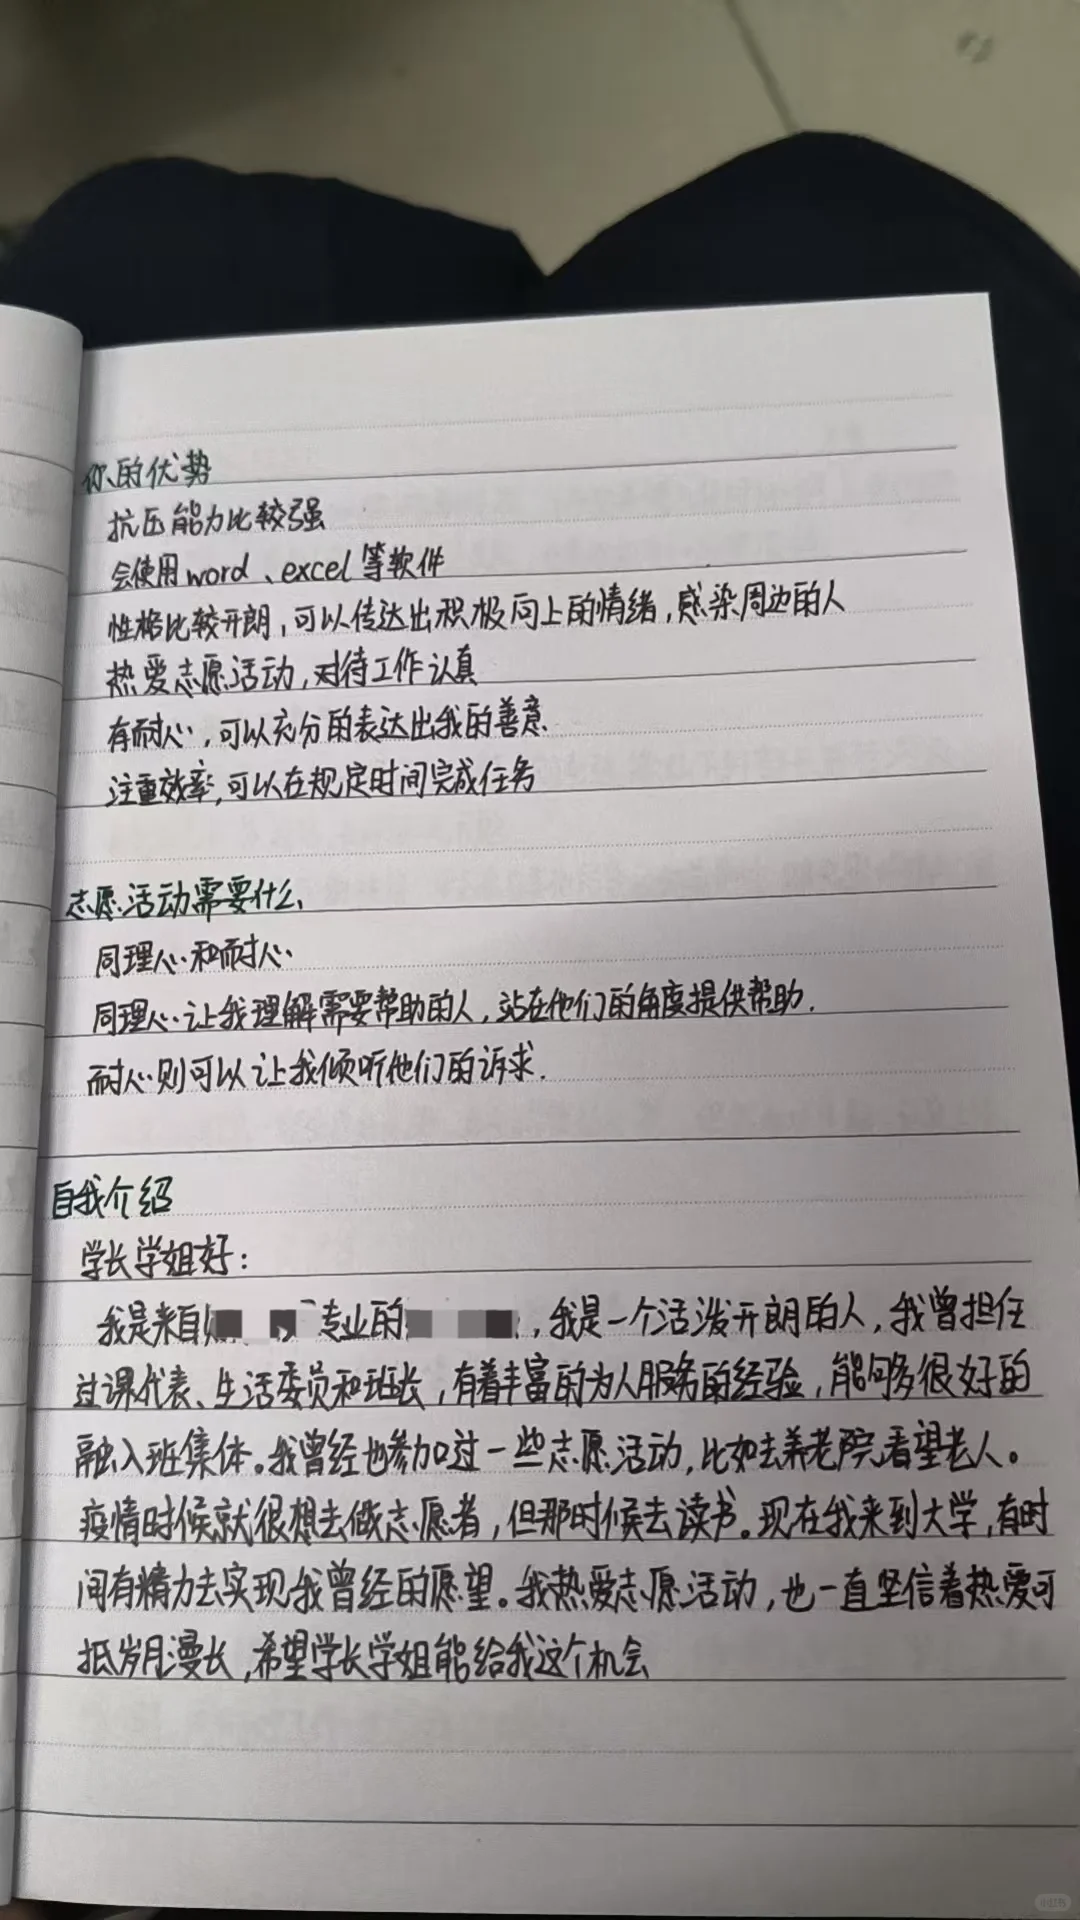 你的优势
抗压能力比较强
会使用word、excel等软件
性格比较开朗，可以传达出积极向上的情绪，感染周边的人
热爱志愿活动，对待工作认真
有耐心，可以充分的表达出我的善意.
注重效率，可以在规定时间完成任务
志愿活动需要什么
同理心和耐心
同理心让我理解需要帮助的人，站在他们的角度提供帮助.
耐心则可以让我倾听他们的诉求.
自我介绍
学长学姐好：
我是来自 专业的 ，我是一个活泼开朗的人，我曾担任
过课代表、生活委员和班长，有着丰富的为人服务的经验，能够很好的
融入班集体。我曾经也参加过一些志愿活动，比如去养老院看望老人。
疫情时候就很想去做志愿者，但那时候去读书。现在我来到大学，有时
间有精力去实现我曾经的愿望。我热爱志愿活动，也一直坚信着热爱可
抵岁月漫长，希望学长学姐能给我这个机会
小红书